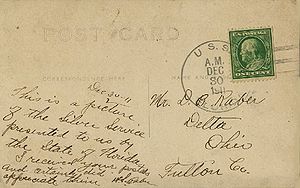 POST CARD
CORRESPONDENCE HERE
NAME AND
U.S.S.
A.M.
DEC
30
191
U.S. POSTAGE
ONE CENT
Dec 30-11
This is a picture
of the Silver Service
presented to us by
the State of Florida
I received your postals
and certainly did
appreciate them.
Mr. D. B. Raber
Delta
Ohio
Fulton Co.